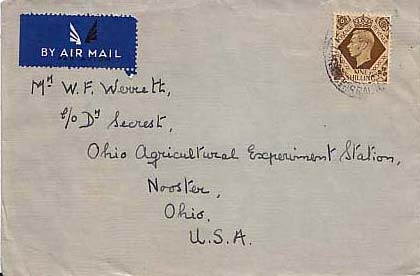 BY AIR MAIL
ONE
SHILLING
Mr W. F. Werrett,
c/o Dr Secrest,
Ohio Agricultural Experiment Station,
Nooster,
Ohio.
U.S.A.